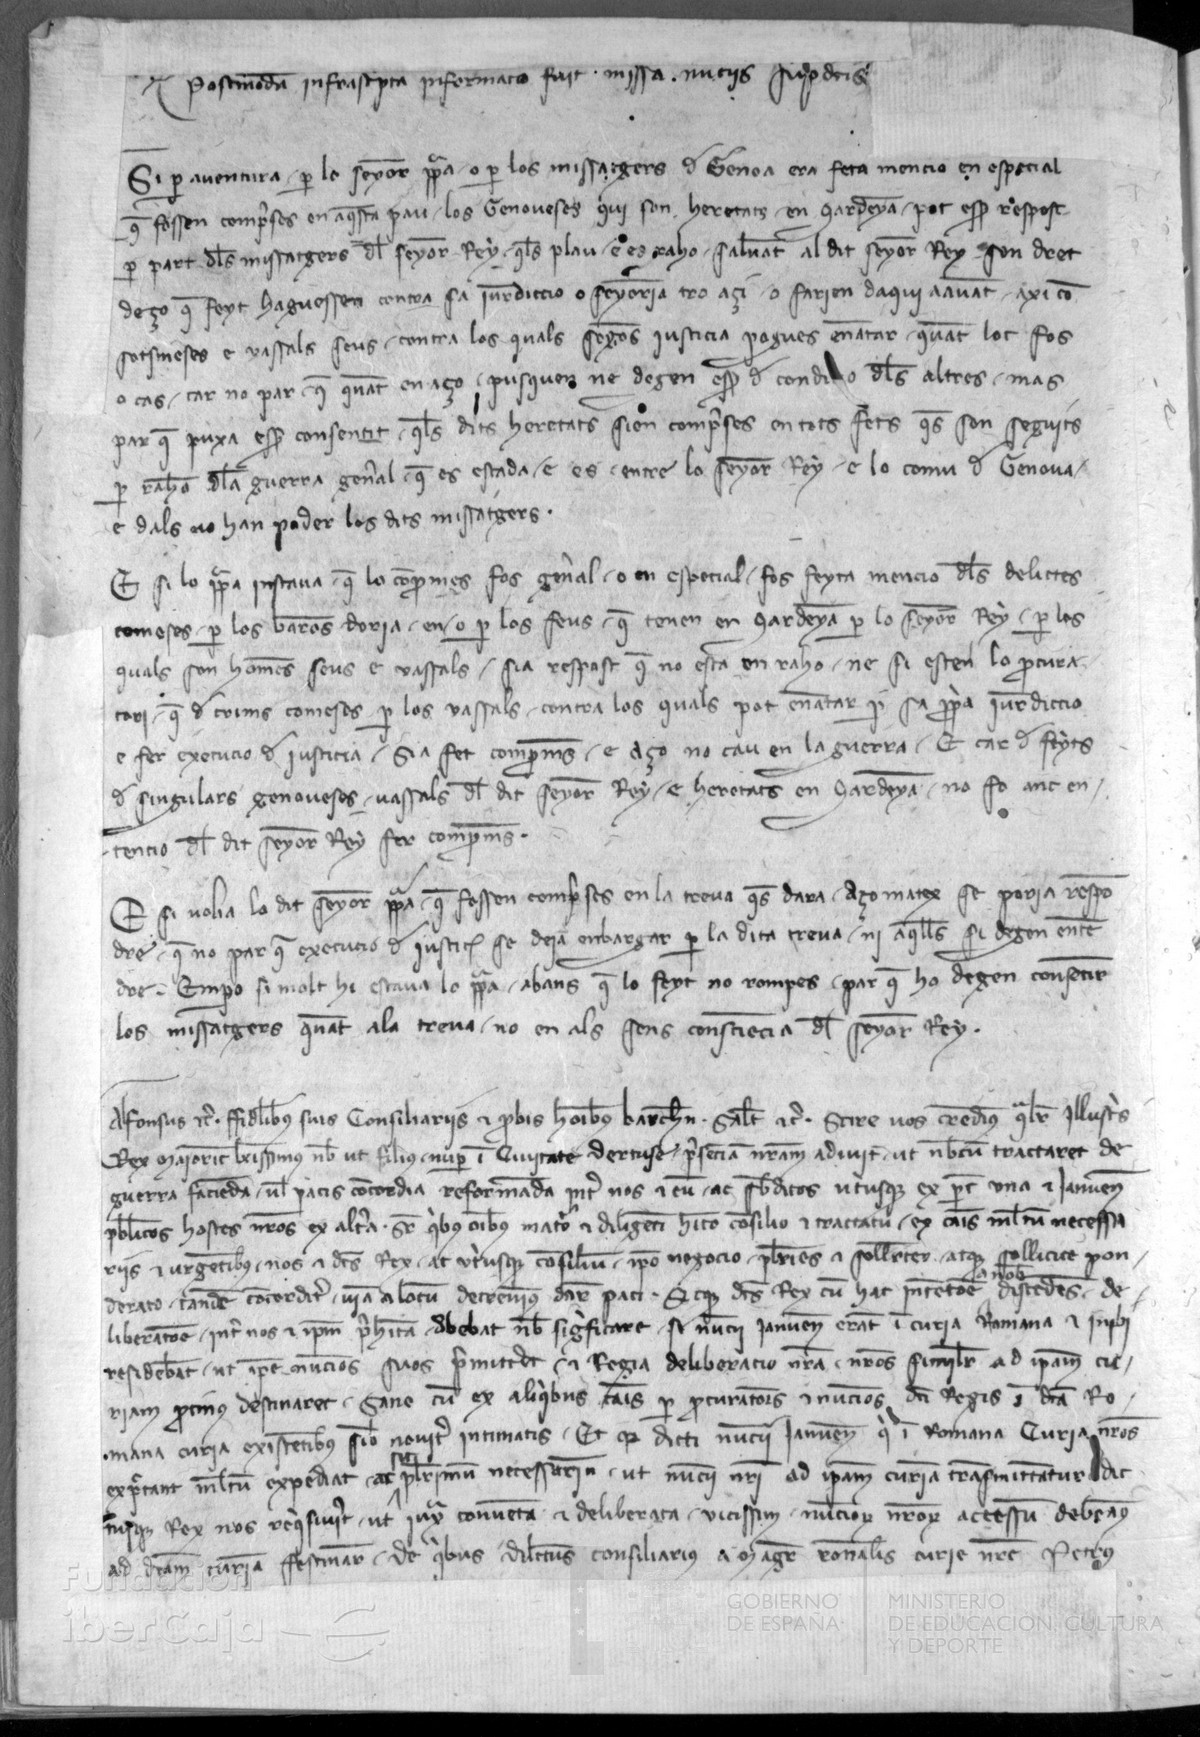 Postmodu infrascripta informatio fuit missa nuciis supdcis
Si p aventura p lo senyor ppa o p los missatgers d Genoa era feta mencio en especial
q fossen compses en aqsta pau los Genoveses qui son heretats en Sardeya pot esser respost
p part dls missatgers dl senyor Rey qls plau e es raho salvat al dit senyor Rey son dret
deço q feyt haguessen contra sa jurdiccio o senyoria tro açi o farien daqui avat axi co
sotsmeses e vassals seus contra los quals segos justicia pogues enatar quat loc fos
o cas car no par q quat en aço pusquen ne degen esser d condicio dls altres mas
par q puxa esser consentit qls dits heretats sien compses en tots fets qs son seguits
p raho dla guerra genal q es estada e es entre lo senyor Rey e lo comu d Genova
e dals no han poder los dits missatgers.
E si lo ppa instava q lo copmes fos genal o en especial fos feyta mencio dls delictes
comeses p los barons doria en o p los feus q tenen en Sardeya p lo senyor Rey p los
quals son homes seus e vassals sia respost q no esta en raho ne si esten lo pcura
tori q d crims comeses p los vassals contra los quals pot enatar p sa ppa jurdiccio
e fer execucio d justicia sia fet compms e aço no cau en la guerra E car d feyts
d singulars genoveses vassals dl dit senyor Rey e heretats en Sardeya no fo anc en
tencio dl dit senyor Rey fer compms.
E si volia lo dit senyor ppa q fossen compses en la treva qs dara aço matex se poria respo
dre q no par q execucio d justic se deja enbargar p la dita treva ni aqlls si degen ente
dre Empo si molt hi estava lo ppa abans q lo feyt no rompes par q ho degen consetir
los missatgers quat ala treva no en als sens consciecia dl senyor Rey.
Alfonsus etc. ffidelibus suis Consiliariis et pbis hoibus barchn. Salt etc. Scire vos credim qlr Illustris
Rex Maioric kmus nr ut filius nup i Civitate dertuse psecia nram adivit ut nbcu tractaret de
guerra facieda vl pacis cocordia reformada int nos et eu ac sbditos utiusq ex pte una et Januen
pblicos hostes nros ex alta. Sr qbus oibus mato et diligeti hito cosilio et tractatu ex cais mltu necessa
riis et urgetibus nos et dcs Rex ac utiusq cosiliu ipo negocio plries et sollter atq sollicite pon
derato tande cocordit via aloctu decrevims dar paci. Et q dcs Rex cu hac intetoe a nob discedes de
liberatoe int nos et ipm phita debebat nb sigficare si nucii Januen erat i curia Romana et inibi
residebat ut ipe nucios suos pmittet et Regia deliberacio nra nros similr ad ipam cu
riam ptinus destinaret Sane cu ex aliqibus cais p pcuratores et nucios dci Regis i dca Ro
mana curia existetibus sibi novit intimatis Et q dicti nucii Januen qi i Romana Curia nros
exptant mltu expediat ac sit plrimu necessariu ut nucii nri ad ipam curia trasmittatur dic
tusq Rex nos reqsivit ut iux coventa et deliberata vicissim nucior nror accessu debeam
ad dcam curia festinar de qbus dilectus consiliarius et magr ronalis curie nre Petrus
Fundación
iberCaja
GOBIERNO
DE ESPAÑA
MINISTERIO
DE EDUCACIÓN, CULTURA
Y DEPORTE